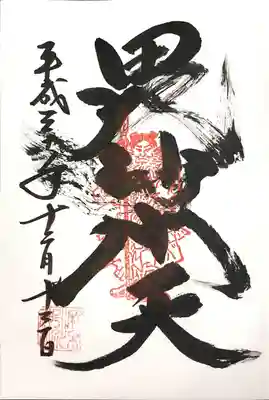 毘沙門天
平成三十年十二月十三日